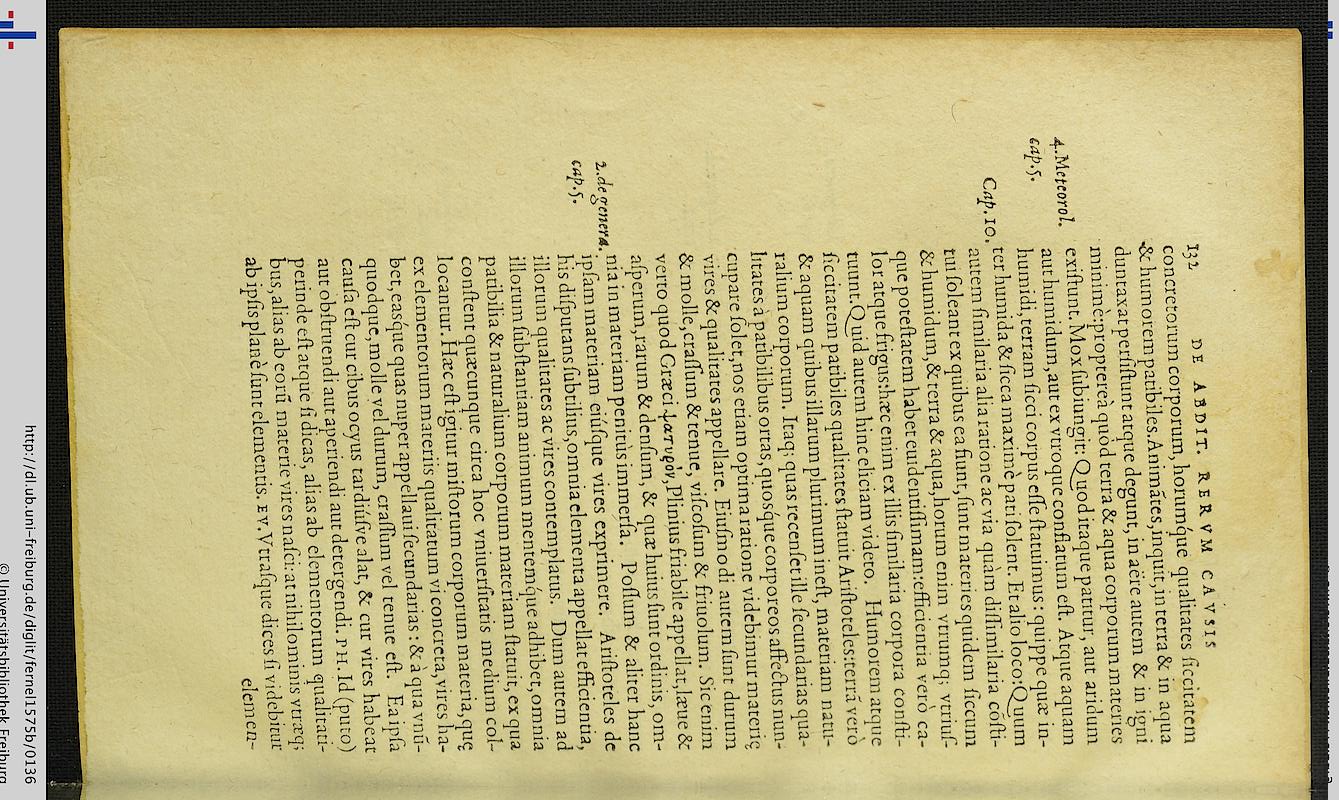 132 DE ABDIT. RERVM CAVSIS
concretorum corporum, horumque qualitates siccitatem
& humorem patibiles. Animātes, inquit, in terra & in aqua
duntaxat persistunt atque degunt, in aëre autem & in igni
minimè: propterea quòd terra & aqua corporum materies
existunt. Mox subiungit: Quod itaque patitur, aut aridum
4. Meteorol.
cap. 5.
aut humidum, aut ex vtroque conflatum est. Atque aquam
humidi, terram sicci corpus esse statuimus: quippe quæ in-
ter humida & sicca maximè pati solent. Et alio loco: Quum
Cap. 10.
autem similaria alia ratione ac via quàm dissimilaria cōsti-
tui soleant ex quibus ea fiunt, sunt materies quidem siccum
& humidum, & terra & aqua, horum enim vtrumq; vtrius-
que potestatem habet euidentissimam: efficientia verò ca-
lor atque frigus: hæc enim ex illis similaria corpora consti-
tuunt. Quid autem hinc eliciam videto. Humorem atque
siccitatem patibiles qualitates statuit Aristoteles: terrā verò
& aquam quibus illarum plurimum inest, materiam natu-
ralium corporum. Itaq; quas recenset ille secundarias qua-
litates à patibilibus ortas, quosque corporeos affectus nun-
cupare solet, nos etiam optima ratione videbimur materię
vires & qualitates appellare. Eiusmodi autem sunt durum
& molle, crassum & tenue, viscosum & friuolum. Sic enim
verto quod Græci ψατυρὸν, Plinius friabile appellat, læue &
asperum, rarum & densum, & quæ huius sunt ordinis, om-
nia in materiam penitùs immersa. Possum & aliter hanc
2. de genera.
cap. 5.
ipsam materiam eiúsque vires exprimere. Aristoteles de
his disputans subtilius, omnia elementa appellat efficientia,
illorum qualitates ac vires contemplatus. Dum autem ad
illorum substantiam animum mentémque adhibet, omnia
patibilia & naturalium corporum materiam statuit, ex qua
constent quæcunque circa hoc vniuersitatis medium col-
locantur. Hæc est igitur mistorum corporum materia, quę
ex elementorum materiis qualitatum vi concreta, vires ha-
bet, easque quas nuper appellaui secundarias: & à qua vnū-
quodque, molle vel durum, crassum vel tenue est. Ea ipsa
causa est cur cibus ocyus tardiúsve alat, & cur vires habeat
aut obstruendi aut aperiendi aut detergendi. PH. Id (puto)
perinde est atque si dicas, alias ab elementorum qualitati-
bus, alias ab eorū materie vires nasci: at nihilominus vtræq;
ab ipsis planè sunt elementis. EV. Vtrasque dices si videbitur
elemen-
http://dl.ub.uni-freiburg.de/diglit/fernel1575b/0136
© Universitätsbibliothek Freiburg